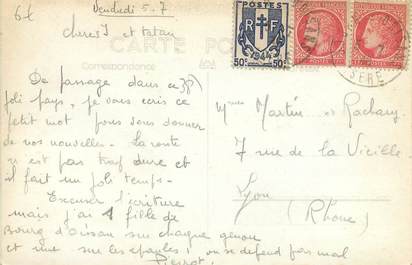 6t
Vendredi 5.7
Cheres J et tatan
CARTE POSTALE
Correspondance
De passage dans ce
joli pays, je vous écris ce
petit mot pour vous donner
de vos nouvelles. La route
n'est pas trop dure et
il fait un joli temps.
Excuser l'écriture
mais j'ai 1 fille de
Bourg d'Oisan sur chaque genou
et une sur les épaules. on se defend pas mal
Pierrot
POSTES
RF
1944
50c 50c
ISERE
Mmes Martin et Rachany
7 rue de la Vieille
Lyon
(Rhone)